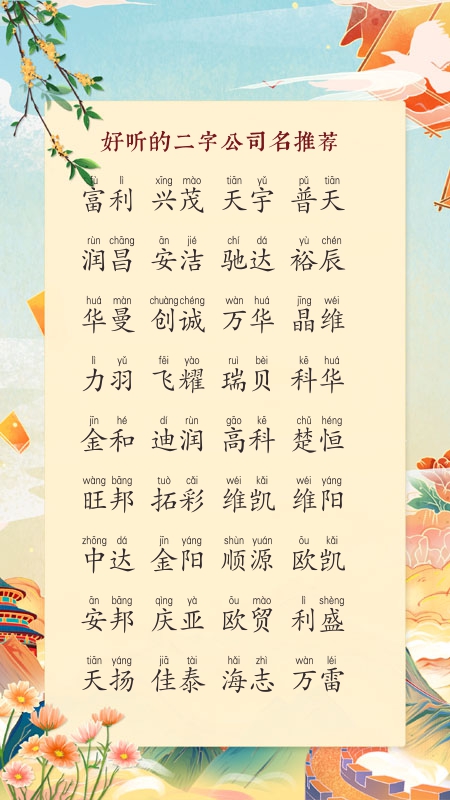 好听的二字公司名推荐
fù lì xīng mào tiān yǔ pǔ tiān
富利 兴茂 天宇 普天
rùn chāng ān jié chí dá yù chén
润昌 安洁 驰达 裕辰
huá màn chuàng chéng wàn huá jīng wéi
华曼 创诚 万华 晶维
lì yǔ fēi yào ruì bèi kē huá
力羽 飞耀 瑞贝 科华
jīn hé dí rùn gāo kē chǔ héng
金和 迪润 高科 楚恒
wàng bāng tuò cǎi wéi kǎi wéi yáng
旺邦 拓彩 维凯 维阳
zhōng dá jīn yáng shùn yuán ōu kǎi
中达 金阳 顺源 欧凯
ān bāng qìng yà ōu mào lì shèng
安邦 庆亚 欧贸 利盛
tiān yáng jiā tài hǎi zhì wàn léi
天扬 佳泰 海志 万雷